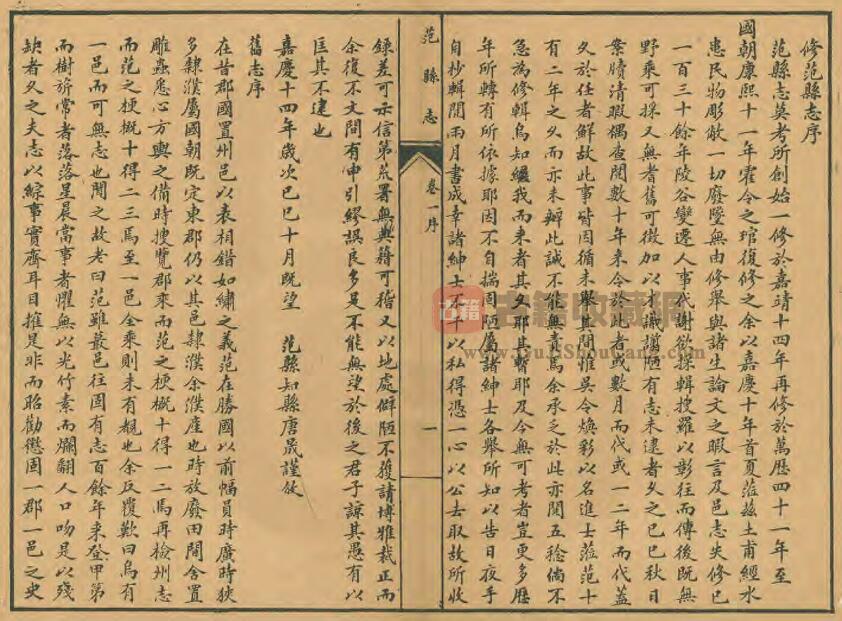 修范縣志序
范縣志莫考所創始一修於嘉靖十四年再修於萬歷四十一年至
國朝康熙十一年霍令之琯復修之余以嘉慶十年首夏蒞兹土甫經水
患民物彫敝一切廢墜無由修舉與諸生論文之暇言及邑志失修已
一百三十餘年陵谷變遷人事代謝欲採輯搜羅以彰往而傳後既無
野乘可採又無耆舊可徵加以才識壖陋有志未逮者久之己巳秋日
案牘清暇偶查閱數十年来令於此者或數月而代或一二年而代蓋
久於任者鮮故此事皆因循未舉其間惟吳令煥彩以名進士蒞范十
有二年之久而亦未辦此誠不能無責焉余承乏於此亦閱五稔倘不
急為修輯烏知繼我而来者其久耶其暫耶及今無可考者豈更多歷
年所轉有所依據耶因不自揣固陋屬諸紳士各舉所知以告日夜手
自抄輯閱兩月書成幸諸紳士不干以私得憑一心以公去取故所收
范縣志
卷一序
一
錄差可示信第荒署無典籍可稽又以地處僻陋不獲請博雅裁正而
余復不文間有申引繆誤良多是不能無望於後之君子諒其愚有以
匡其不逮也
嘉慶十四年歲次己巳十月既望 范縣知縣唐晟謹敘
舊志序
在昔郡國置州邑以表相錯如繡之義范在勝國以前幅員時廣時狹
多隸濮屬國朝既定東郡仍以其邑隸濮余濮產也時放廢田間舍置
雕蟲悉心方輿之備時搜覽郡乘而范之梗概十得一二焉再檢州志
而范之梗概十得二三焉至一邑全乘則未有覩也余反覆歎曰烏有
一邑而可無志也聞之故老曰范雖蕞邑往固有志百餘年来登甲第
而樹旂常者落落星晨當事者懼無以光竹素而爛翻人口吻是以殘
缺者久之夫志以綜事實齊耳目摧是非而昭勸懲固一郡一邑之史
古籍
古籍收藏網
www.GuJiShouCang.com